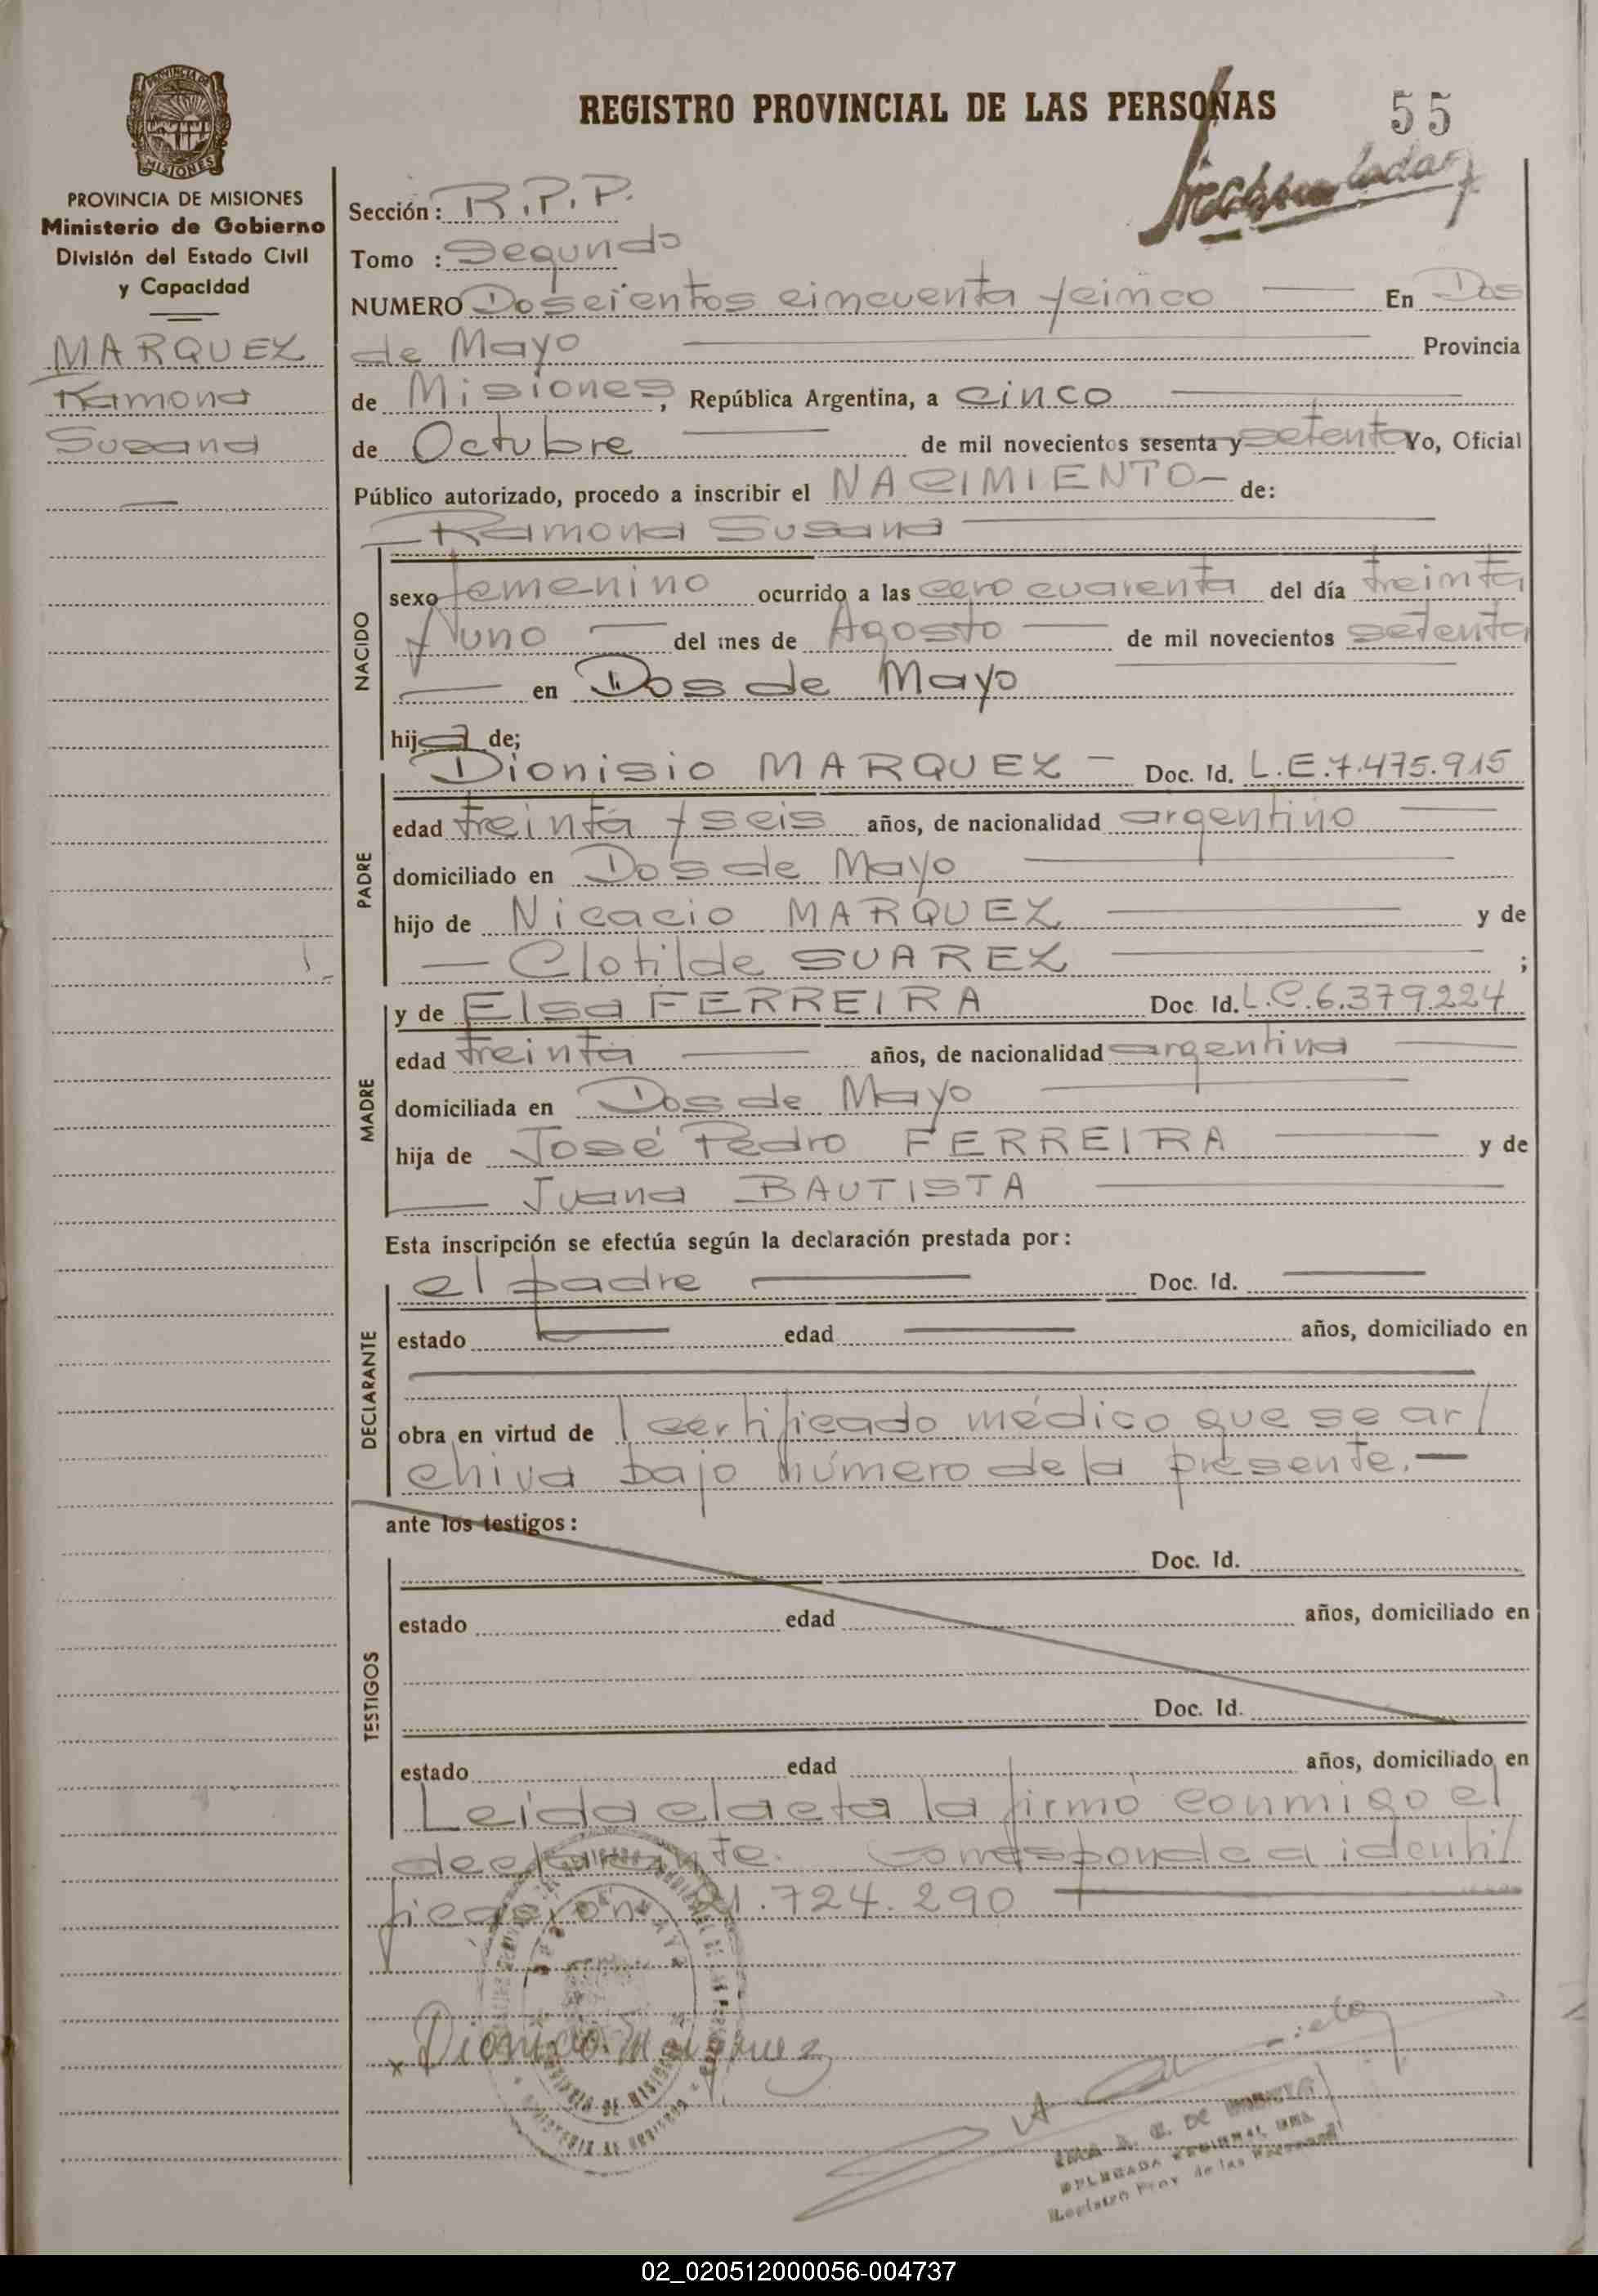 PROVINCIA DE
MISIONES
PROVINCIA DE MISIONES
Ministerio de Gobierno
División del Estado Civil
y Capacidad
MARQUEZ
Ramona
Susana
REGISTRO PROVINCIAL DE LAS PERSONAS
55
Sección: R.P.P.
Tomo : Segundo
NUMERO Doscientos cincuenta y cinco En Dos
de Mayo Provincia
de Misiones, República Argentina, a cinco
de Octubre de mil novecientos sesenta y setenta Yo, Oficial
Público autorizado, procedo a inscribir el NACIMIENTO- de:
Ramona Susana
NACIDO
sexo femenino ocurrido a las cero cuarenta del día treinta
y uno del mes de Agosto de mil novecientos setenta
en Dos de Mayo
hija de;
PADRE
Dionisio MARQUEZ - Doc. Id. L.E.7.475.915
edad treinta y seis años, de nacionalidad argentino
domiciliado en Dos de Mayo
hijo de Nicacio MARQUEZ y de
Clotilde SUAREZ ;
MADRE
y de Elsa FERREIRA Doc. Id. L.C.6.379.224
edad treinta años, de nacionalidad argentina
domiciliada en Dos de Mayo
hija de José Pedro FERREIRA y de
Juana BAUTISTA
Esta inscripción se efectúa según la declaración prestada por:
DECLARANTE
el padre Doc. Id.
estado edad años, domiciliado en
obra en virtud de l certificado médico que se ar/
chiva bajo número de la presente.-
ante los testigos:
TESTIGOS
Doc. Id.
estado edad años, domiciliado en
Doc. Id.
estado edad años, domiciliado en
Leida el acta la firmó conmigo el
declarante. Corresponde a identi/
ficación 21.724.290
x Dionicio Marquez
DE
DELEGADA REGIONAL
Registro Prov. de las Personas
02_020512000056-004737